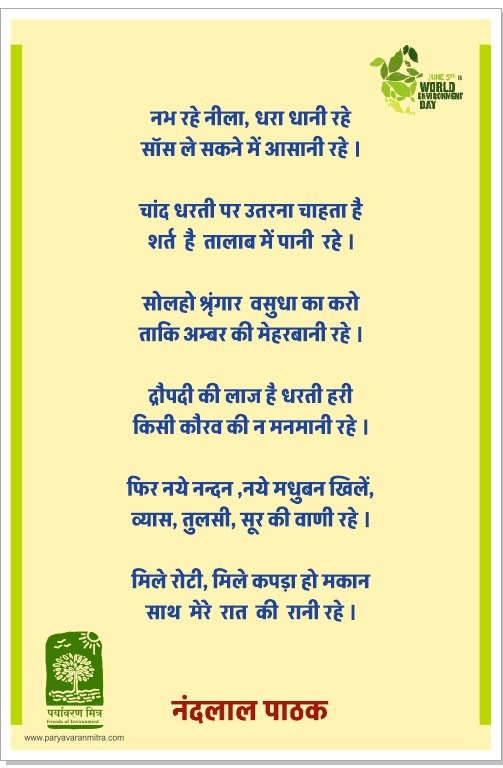 JUNE 5TH IS
WORLD
ENVIRONMENT
DAY
नभ रहे नीला, धरा धानी रहे
सॉस ले सकने में आसानी रहे ।
चांद धरती पर उतरना चाहता है
शर्त है तालाब में पानी रहे ।
सोलहो श्रृंगार वसुधा का करो
ताकि अम्बर की मेहरबानी रहे ।
द्रौपदी की लाज है धरती हरी
किसी कौरव की न मनमानी रहे ।
फिर नये नन्दन ,नये मधुबन खिलें,
व्यास, तुलसी, सूर की वाणी रहे ।
मिले रोटी, मिले कपड़ा हो मकान
साथ मेरे रात की रानी रहे ।
नंदलाल पाठक
पर्यावरण मित्र
Friends of Environment
www.paryavaranmitra.com